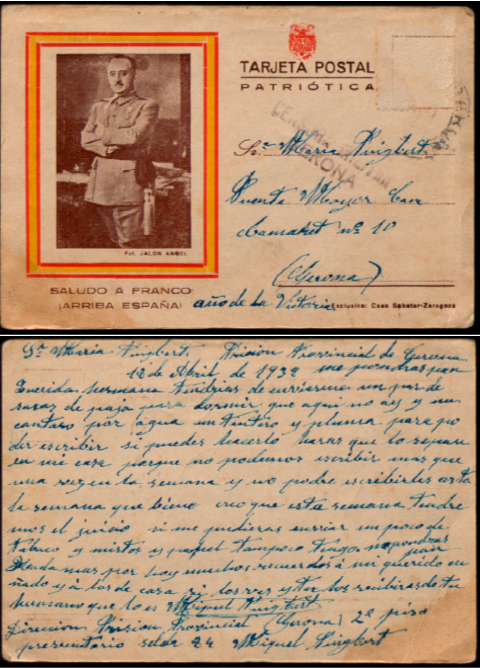 TARJETA POSTAL
PATRIÓTICA
GERONA
Sra María Puigbert
Puente Mayor Can
Camaret nº 10
(Gerona)
Fot. JALON ANGEL
SALUDO A FRANCO:
¡ARRIBA ESPAÑA!
año de la Victoria
Exclusiva: Casa Sabater-Zaragoza
Sra María Puigbert. Prision Provincial de Gerona
12 de Abril de 1939 me pondras pan
Querida hermana tindrias de enviarme un par de
sacas de paja para dormir que aqui no ay y un
cantaro por agua un tintero y pluma para po
der escribir si puedes hacerlo haras que lo sepan
en mi casa porque no podemos escribir mas que
una vez en la semana y no podre escribirles asta
la semana que biene creo que esta semana tendre
mos el juicio si me pudieras enviar un poco de
tabaco y mistos y papel tampoco tengo no pondras pan
nada mas por hoy muchos recuerdos a mi querido cu
ñado y a los de casa si los ves y tu los recibiras de tu
hermano que lo es Miguel Puigbert
Direccion Prision Provincial (Gerona) 2º piso
preventorio selda 24 Miguel Puigbert